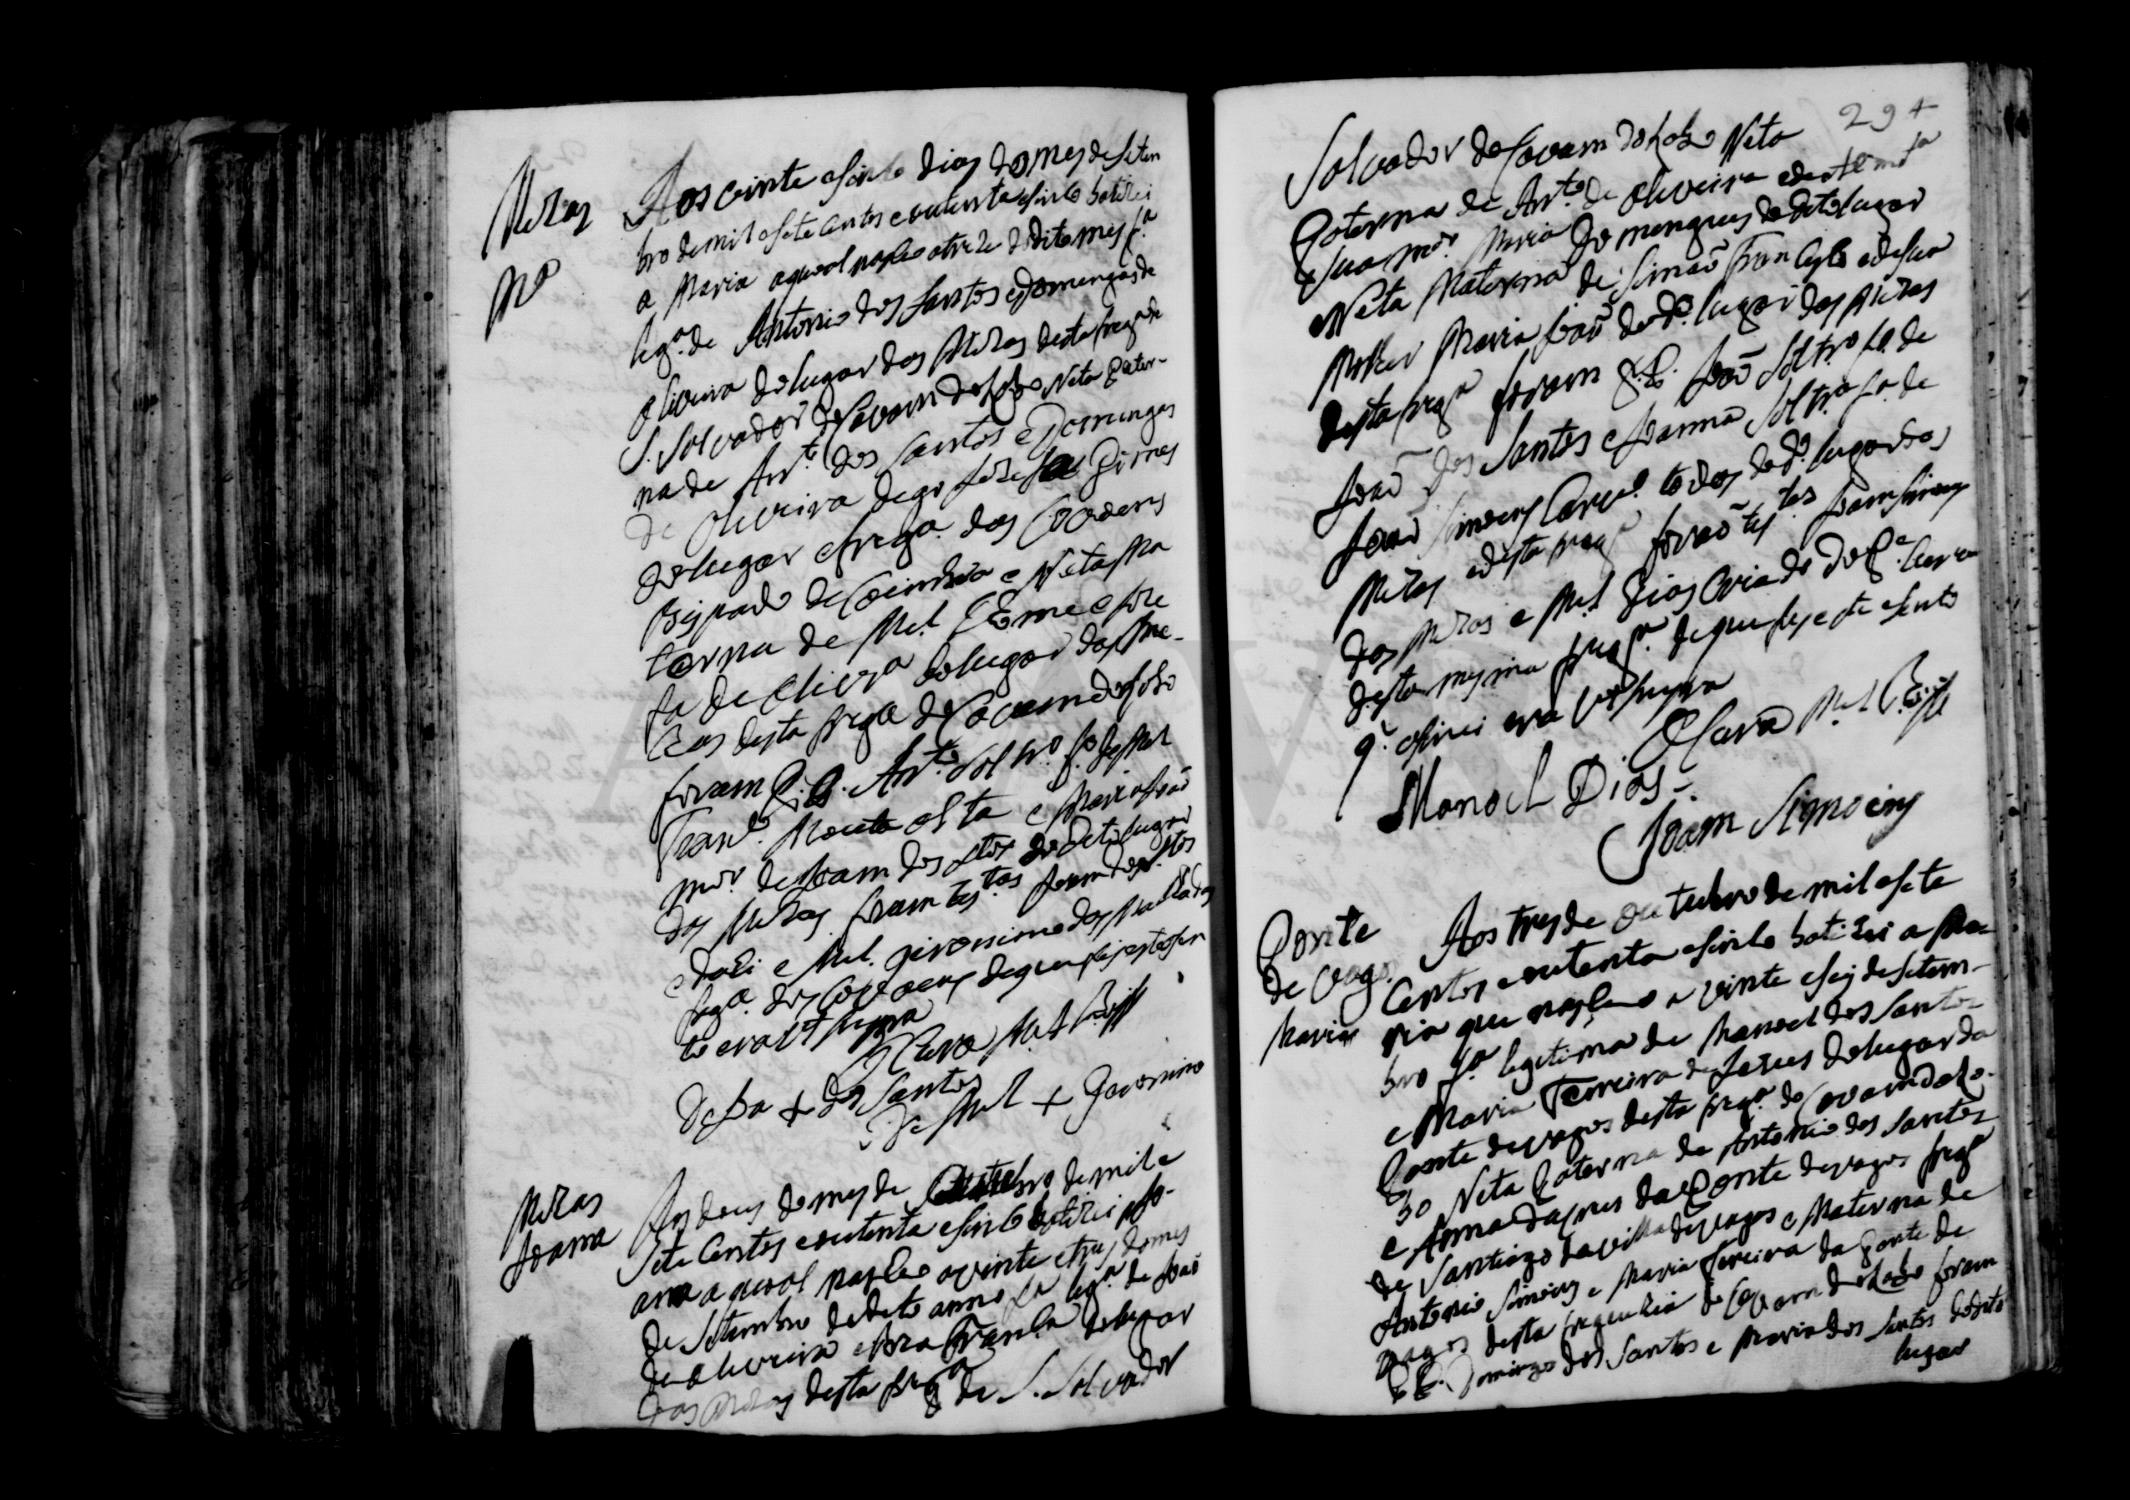 Mezas
Mª
Aos vinte e sinco dias do mes de setem
bro de mil e sete centos e outenta e sinco batizei
a Maria a qual nasceo a treze do dito mes fª
legª. de Antonio dos Santos e Domingas de
oliveira do lugar das Mezas desta fregª de
S. Salvador de Covam do Lobo Neta Pater-
na de Antº. dos Santos e Domingas
de oliveira digo Josefa Pires
do lugar e fregª. dos Covoens
Bispado de Coimbra e Neta Ma
terna de Mel. e Joze
fa de olivrª do lugar das Me-
zas desta fregª de Covam do Lobo
foram P.P. Antº. Soltrº. fº. de Mel
Franº. e Maria Joaõ
mer. de Joam dos Stos do dito lugar
das Mezas foram testas Joam dos Stos
e Mel. Jeronimo dos
fregª. dos Covoens de que fis este asen
to era ut supra
O Cura Mel
De Joa + dos Santos
De Mel + Jeronimo
Mezas
Joana
Aos dous do mes de Outubro de mil e
sete centos e outenta e sinco batizei a Jo-
ana a qual nasceo a vinte e tres do mes
de Setembro do dito anno fª legª. de Joaõ
de oliveira e Franca do lugar
das Mezas desta fregª de S. Salvador
294
Salvador de Covam do Lobo Neta
Paterna de Antº. de oliveira
e sua mer. Maria Domingues do dito lugar
e Neta Materna de Simaõ Francisco e de sua
Molher Maria Joaõ do dº. lugar das Mezas
desta fregª foram P.P. Joaõ Soltrº fº. de
Joaõ dos Santos e Joanna Soltrª fª. de
Joaõ Simoens todos do dº. lugar das
Mezas e desta fregª foraõ testas Joam Simoens
das Mezas e Mel Dias Criado do
desta mesma fregª. de que fis este asento
q. asinei era ut supra
O Cura Mel
Manoel Dias
Joam Simoens
Ponte
de Vagos
Maria
Aos tres de outubro de mil e sete
Centos e outenta e sinco batizei a Ma-
ria que nasceo a vinte e seis de setem-
bro fª legitima de Manoel dos Santos
e Maria Ferreira de Jesus do lugar da
Ponte de vagos desta fregª. de Covam do Lo-
bo Neta Paterna de Antonio dos Santos
e Anna da Ponte de vagos fregª
de Santiago da villa de vagos e Materna de
Antonio Simoens e Maria Ferreira da Ponte de
vagos desta freguezia de Covam do Lobo foram
P.P. Domingos dos Santos e Maria dos Santos do dito
lugar